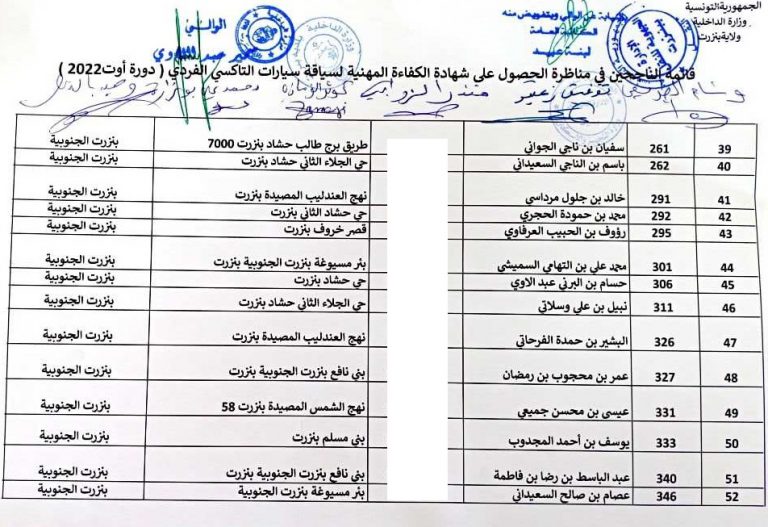 الجمهورية التونسية
وزارة الداخلية
ولاية بنزرت
الوالي
قائمة الناجحين في مناظرة الحصول على شهادة الكفاءة المهنية لسياقة سيارات التاكسي الفردي ( دورة أوت2022 )
39 261 سفيان بن ناجي الجواني طريق برج طالب حشاد بنزرت 7000 بنزرت الجنوبية
40 262 باسم بن الناجي السعيداني حي الجلاء الثاني حشاد بنزرت بنزرت الجنوبية
41 291 خالد بن جلول مرداسي نهج العندليب المصيدة بنزرت بنزرت الجنوبية
42 292 محمد بن حمودة الحجري حي حشاد الثاني بنزرت بنزرت الجنوبية
43 295 رؤوف بن الحبيب العرفاوي قصر خروف بنزرت بنزرت الجنوبية
44 301 محمد علي بن التهامي السميشي بئر مسيوغة بنزرت الجنوبية بنزرت بنزرت الجنوبية
45 306 حسام بن البرني عبد الاوي حي حشاد بنزرت بنزرت الجنوبية
46 311 نبيل بن علي وسلاتي حي الجلاء الثاني حشاد بنزرت بنزرت الجنوبية
47 326 البشير بن حمدة الفرحاتي نهج العندليب المصيدة بنزرت بنزرت الجنوبية
48 327 عمر بن محجوب بن رمضان بني نافع بنزرت الجنوبية بنزرت بنزرت الجنوبية
49 331 عيسى بن محسن جميعي نهج الشمس المصيدة بنزرت 58 بنزرت الجنوبية
50 333 يوسف بن أحمد المجدوب بني مسلم بنزرت بنزرت الجنوبية
51 340 عبد الباسط بن رضا بن فاطمة بني نافع بنزرت الجنوبية بنزرت بنزرت الجنوبية
52 346 عصام بن صالح السعيداني بئر مسيوغة بنزرت الجنوبية بنزرت الجنوبية